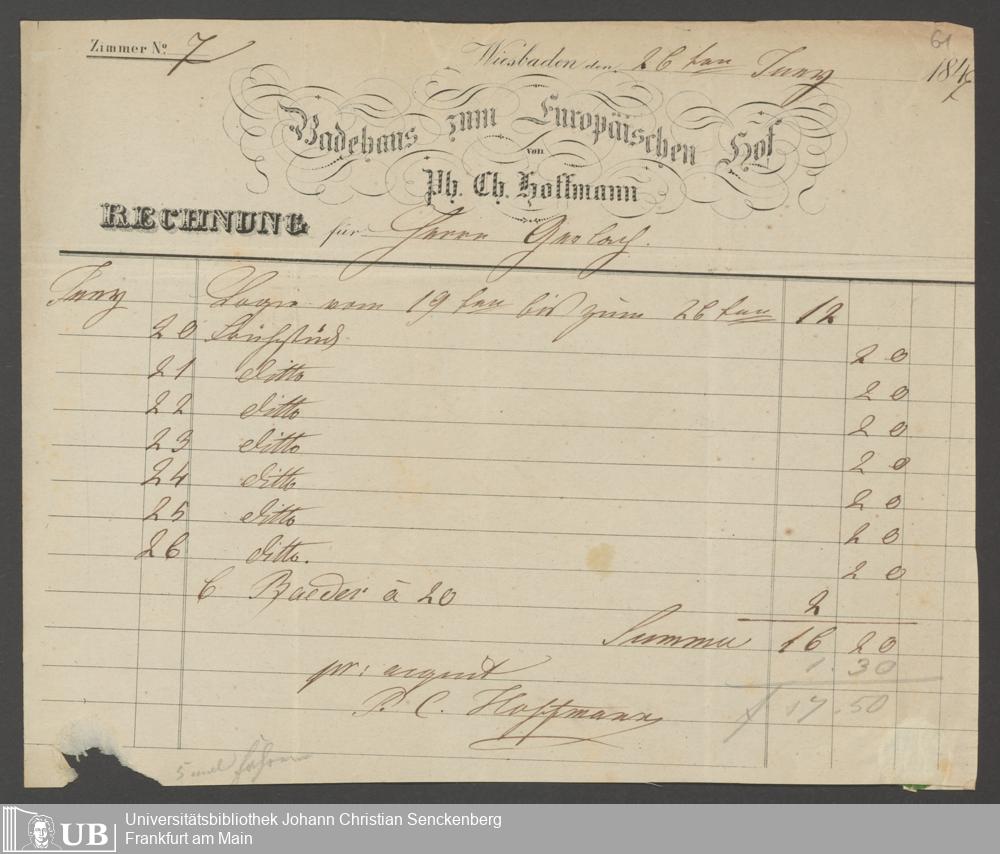 61
Zimmer No. 7
Wiesbaden den 26ten Juny 184
Badehaus zum Europäischen Hof
von
Ph. Ch. Hoffmann
RECHNUNG für Herrn Gerlach.
Juny Logis vom 19ten bis zum 26ten 12
20 Frühstück 20
21 ditto 20
22 ditto 20
23 ditto 20
24 ditto 20
25 ditto 20
26 ditto. 20
6 Baeder à 20 2
Summa 16 20
1.30
pr: acquit
17.50
P. C. Hoffmann
5 mal
UB Universitätsbibliothek Johann Christian Senckenberg
Frankfurt am Main